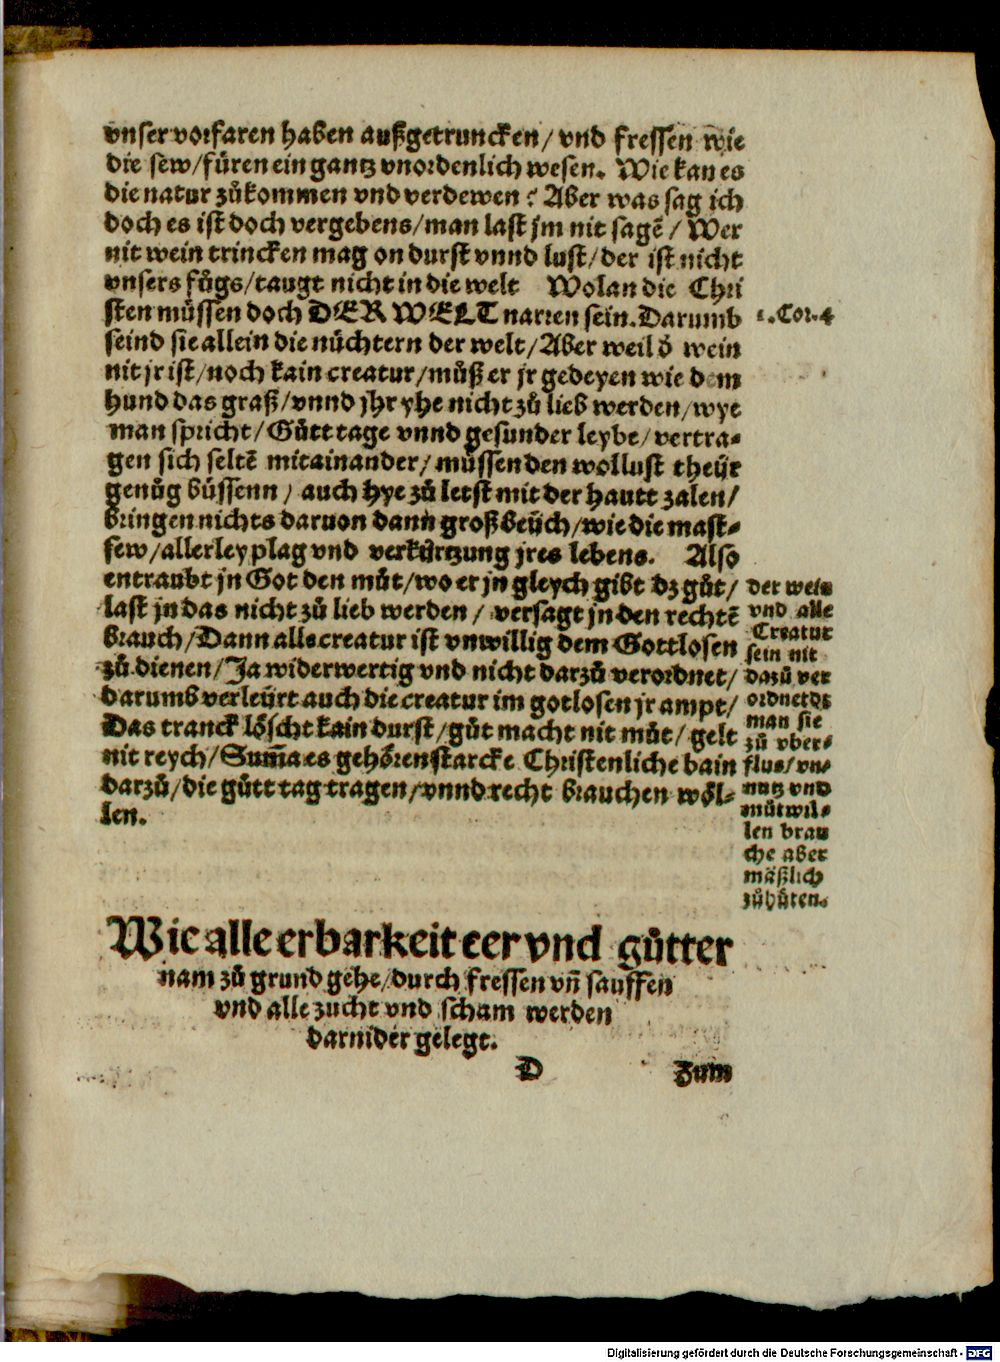 vnser vorfaren haben außgetruncken/ vnd fressen wie
die sew/füren ein gantz vnordenlich wesen. Wie kan es
die natur zůkommen vnd verdewen? Aber was sag ich
doch es ist doch vergebens/man last jm nit sagē/ Wer
nit wein trincken mag on durst vnnd lust/der ist nicht
vnsers fůgs/taugt nicht in die welt Wolan die Chri
sten müssen doch DER WELT narren sein. Darumb
seind sie allein die nüchtern der welt/Aber weil ď wein
nit jr ist/noch kain creatur/můß er jr gedeyen wie dem
hund das graß/vnnd jhr yhe nicht zů lieb werden/wye
man spricht/Gůtt tage vnnd gesunder leybe/vertra-
gen sich seltē mitainander/müssen den wollust theür
genůg büssenn/ auch hye zů letst mit der hautt zalen/
bringen nichts daruon dann groß beüch/wie die mast-
sew/allerley plag vnd verkürtzung jres lebens. Also
entraubt jn Got den můt/wo er jn gleych gibt dz gůt/
last jn das nicht zů lieb werden/ versagt jn den rechtē
brauch/Dann alle creatur ist vnwillig dem Gottlosen
zů dienen/Ja widerwertig vnd nicht darzů verordnet/
darumb verleürt auch die creatur im gotlosen jr ampt/
Das tranck löscht kain durst/gůt macht nit můt/gelt
nit reych/Sum̄a es gehören starcke Christenliche bain
darzů/die gůtt tag tragen/vnnd recht brauchen wöl-
len.
1.Cor.4
der wein
vnd alle
Creatur
sein nit
dazů ver
ordnet dz
man sie
zů vber-
flus/vn-
nutz vnd
můtwil-
len brau
che aber
mäßlich
zůhüten.
Wie alle erbarkeit eer vnd gůtter
nam zů grund gehe/durch fressen vn̄ sauffen
vnd alle zucht vnd scham werden
darnider gelegt.
D Zum
Digitalisierung gefördert durch die Deutsche Forschungsgemeinschaft - DFG